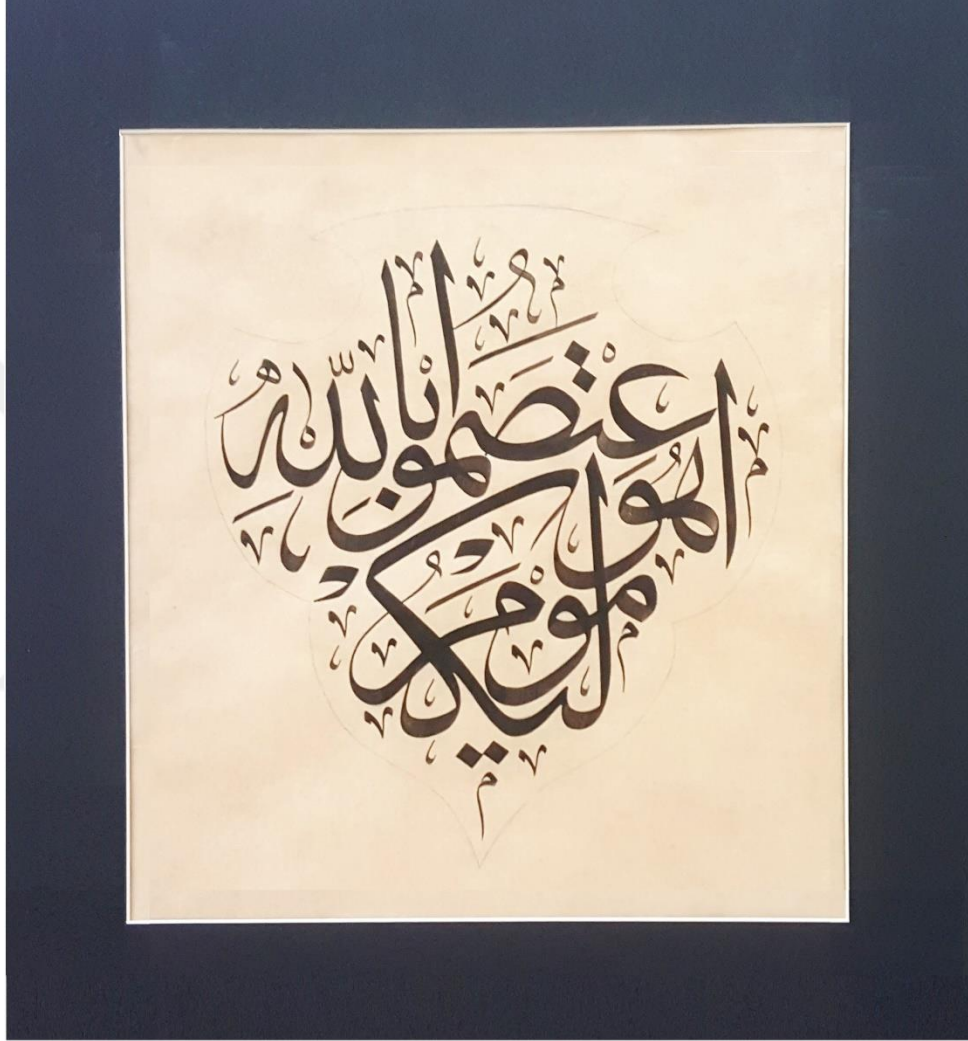 اعتصموا بالله
هو
موليكم